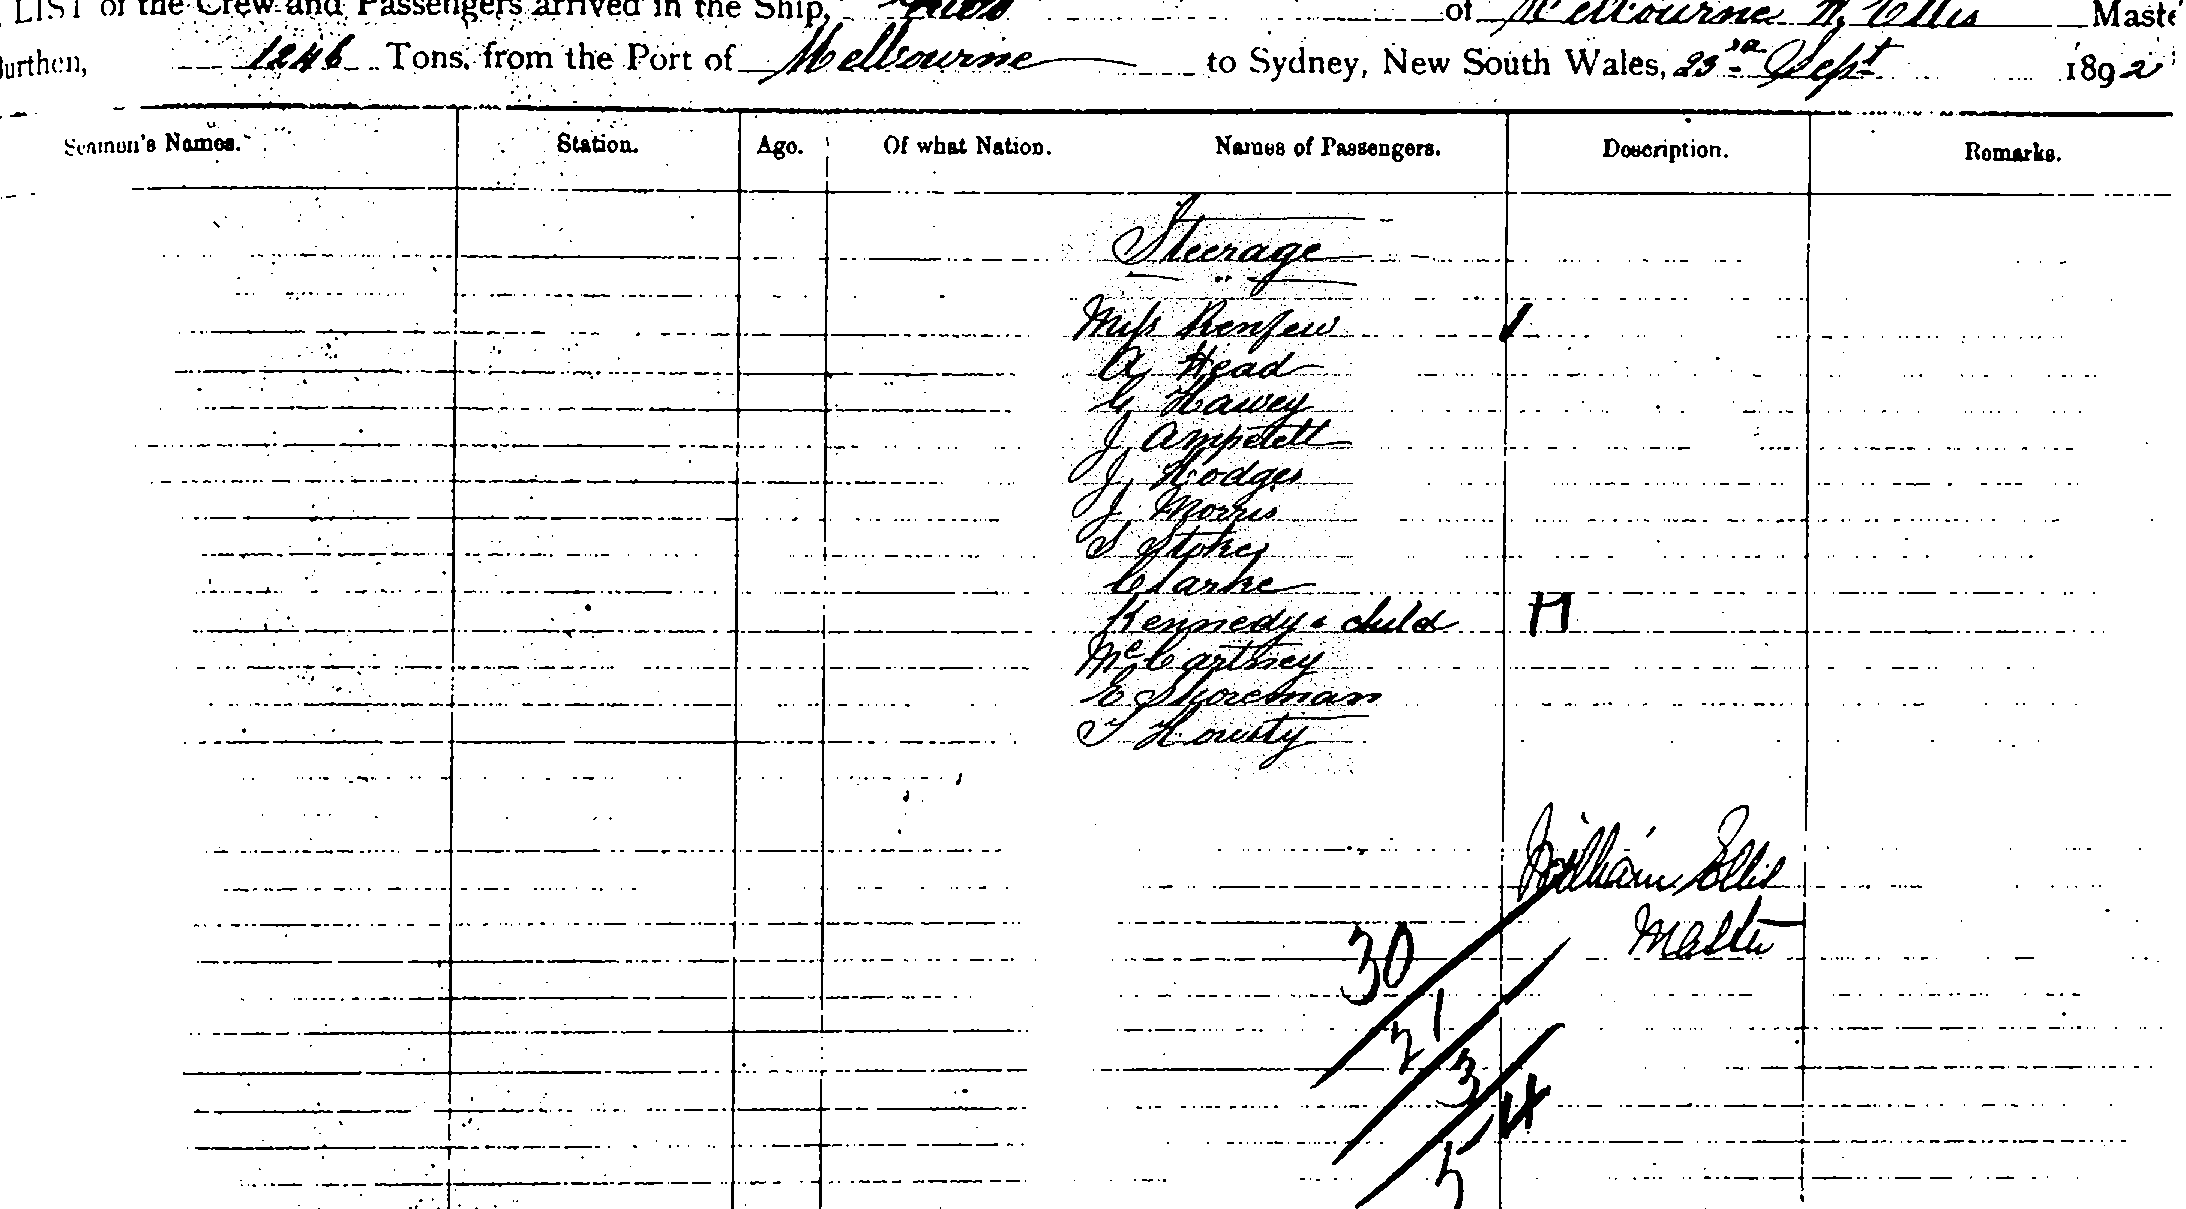 LIST of the Crew and Passengers arrived in the Ship, of Melbourne W. Ellis Maste
Burthen, 1246 Tons, from the Port of Melbourne to Sydney, New South Wales, 23rd Sept 1892
Seamen's Names. Station. Age. Of what Nation. Names of Passengers. Description. Remarks.
Steerage
Miss Renfew
A Head
G Hawey
J Ampelett
J Hodges
J Morris
S Stokes
Clarke
Kennedy & child H
McCartney
E Shoreman
T
William Ellis
Master
30
21
3
4
5